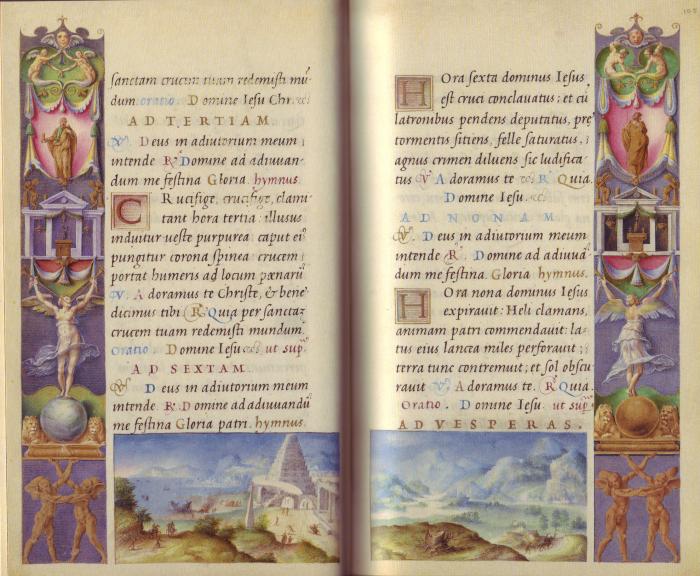 sanctam crucem tuam redemisti mū-
dum. oratio. Domine Iesu Chr.
AD TERTIAM.
V. Deus in adiutorium meum
intende R. Domine ad adiuuan-
dum me festina Gloria. hymnus.
CRucifige, crucifige, clami-
tant hora tertia: illusus
induitur ueste purpurea: caput ei
pungitur corona spinea: crucem
portat humeris ad locum pœnarū
V. Adoramus te Christe, & bene-
dicimus tibi R. Quia per sanctā
crucem tuam redemisti mundum.
Oratio. Domine Iesu ut sup.
AD SEXTAM.
V. Deus in adiutorium meum
intende R. Domine ad adiuuandū
me festina Gloria patri. hymnus.
105
HOra sexta dominus Iesus
est cruci conclauatus: et cū
latronibus pendens deputatus, præ
tormentis sitiens, felle saturatus,
agnus crimen diluens sic ludifica-
tus V. Adoramus te R. Quia.
Domine Iesu.
AD NONAM
V. Deus in adiutorium meum
intende R. Domine ad adiuuā-
dum me festina. Gloria hymnus.
HOra nona dominus Iesus
expirauit: Heli clamans,
animam patri commendauit: la-
tus eius lancea miles perforauit:
terra tunc contremuit, et sol obscu
rauit V. Adoramus te. R. Quia.
Oratio. Domine Iesu. ut sup.
AD VESPERAS.